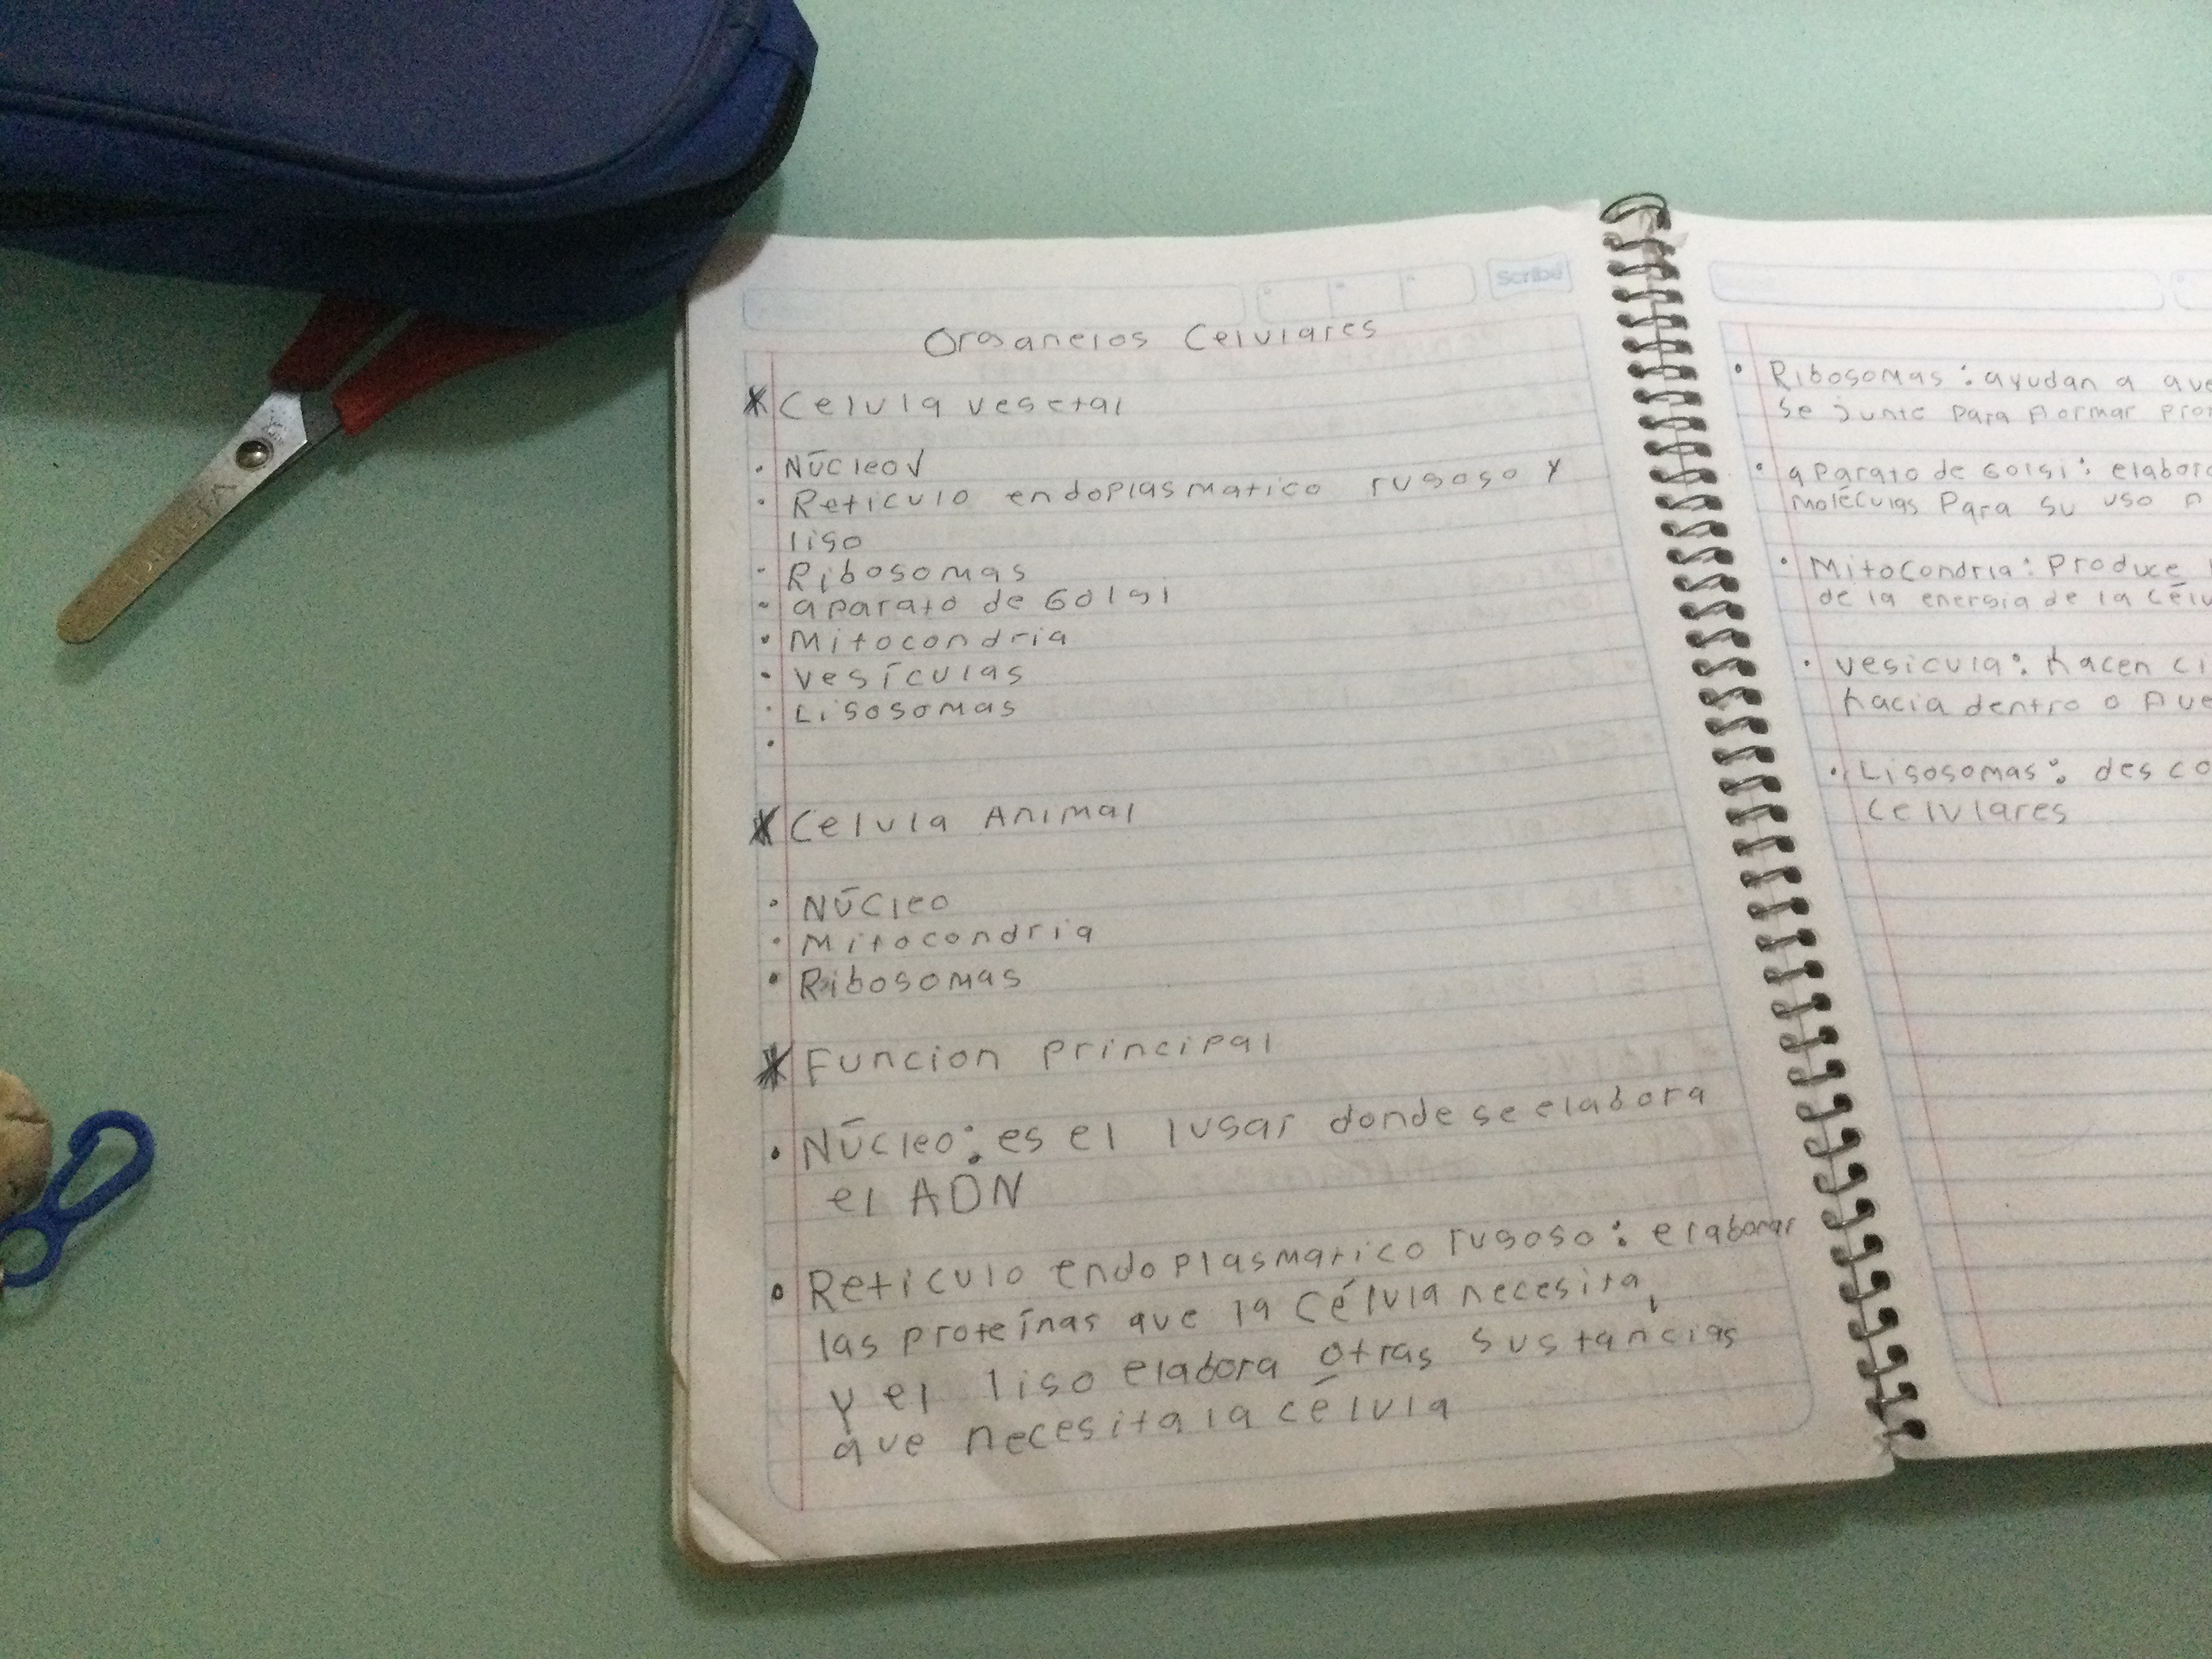 Scribe
Organelos Celulares
Celula vegetal
• Núcleo√
• Reticulo endoplasmatico rugoso y
liso
• Ribosomas
• aparato de Golgi
• Mitocondria
• Vesículas
• Lisosomas
•
Celula Animal
• Núcleo
• Mitocondria
• Ribosomas
Funcion principal
• Núcleo: es el lugar donde se elabora
el ADN
• Reticulo endoplasmatico rugoso: elaborar
las proteínas que la célula necesita,
y el liso elabora otras sustancias
que necesita la célula
• Ribosomas: ayudan a que
se junte para formar
• aparato de Golgi: elabora
moléculas para su uso
• Mitocondria: Produce
de la energia de la
• vesicula: hacen
hacia dentro o
• Lisosomas:
celulares